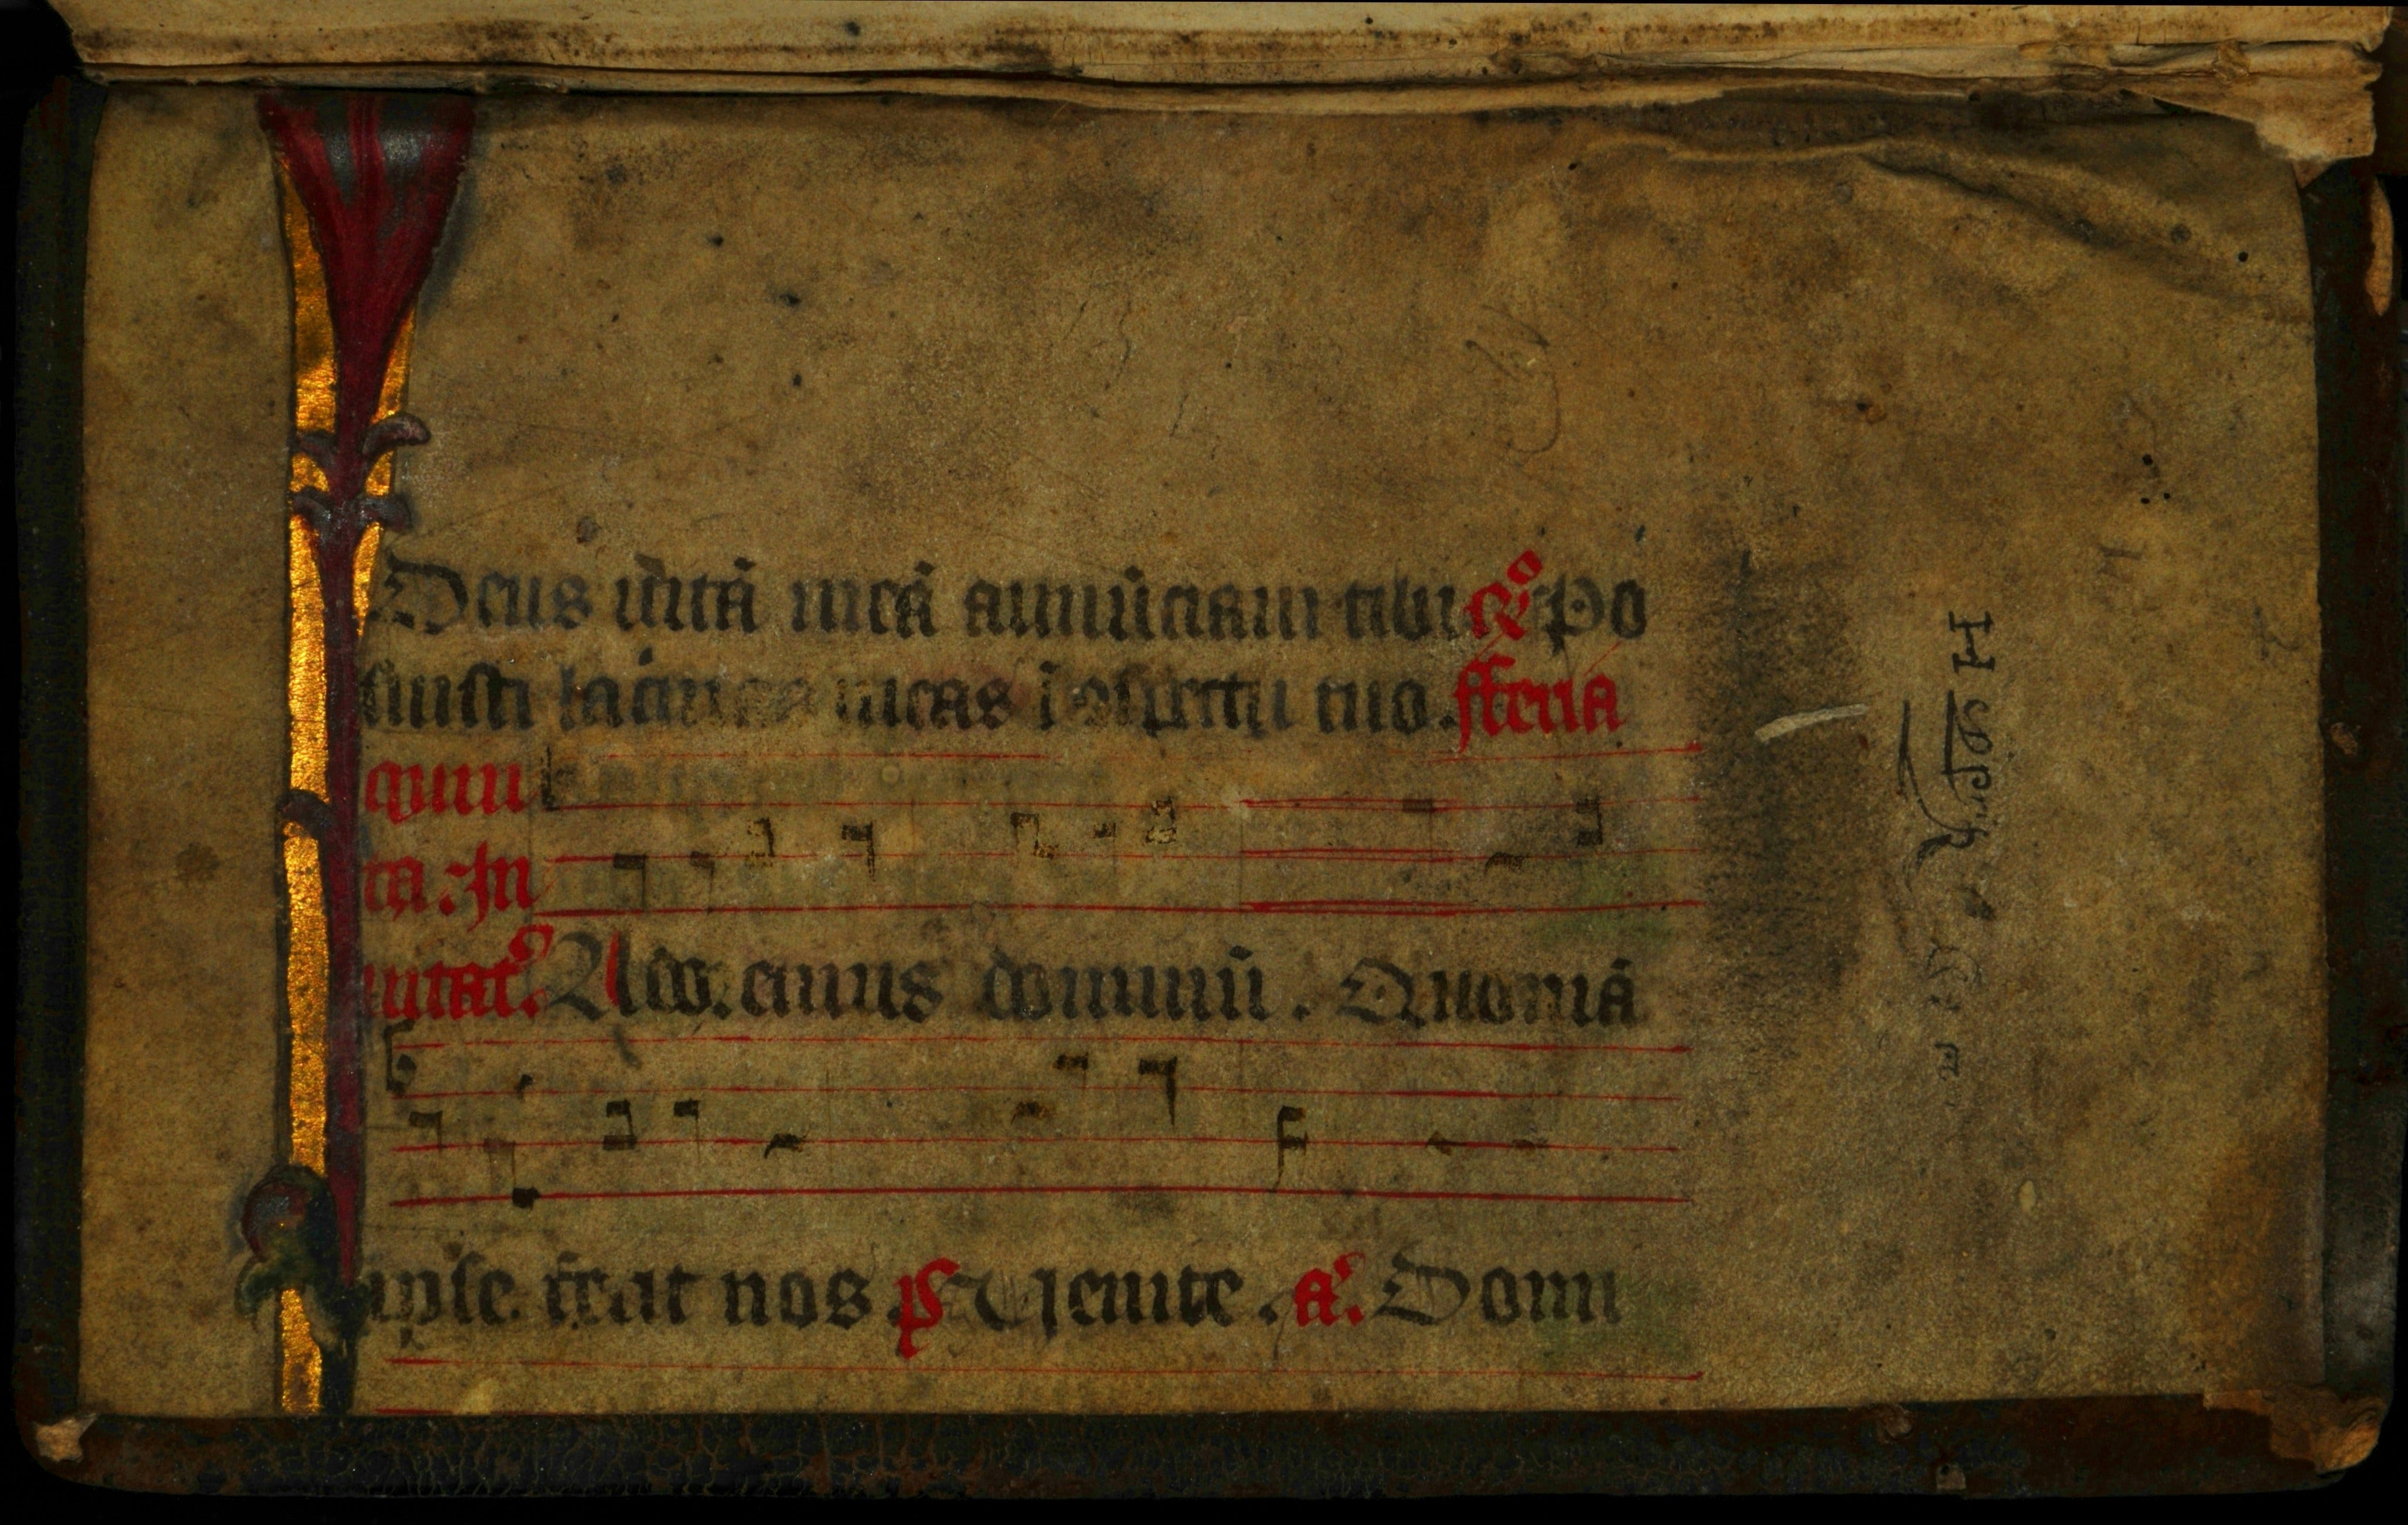 Deus uitā meā annūciam tibi ℟ Po
suisti lac̄mas meas ī ɔspectu tuo. fferia
quin
ta. In
uitat. Ado. emus dominū. Quoniā
ipse fecit nos ps Venite. a. Domi